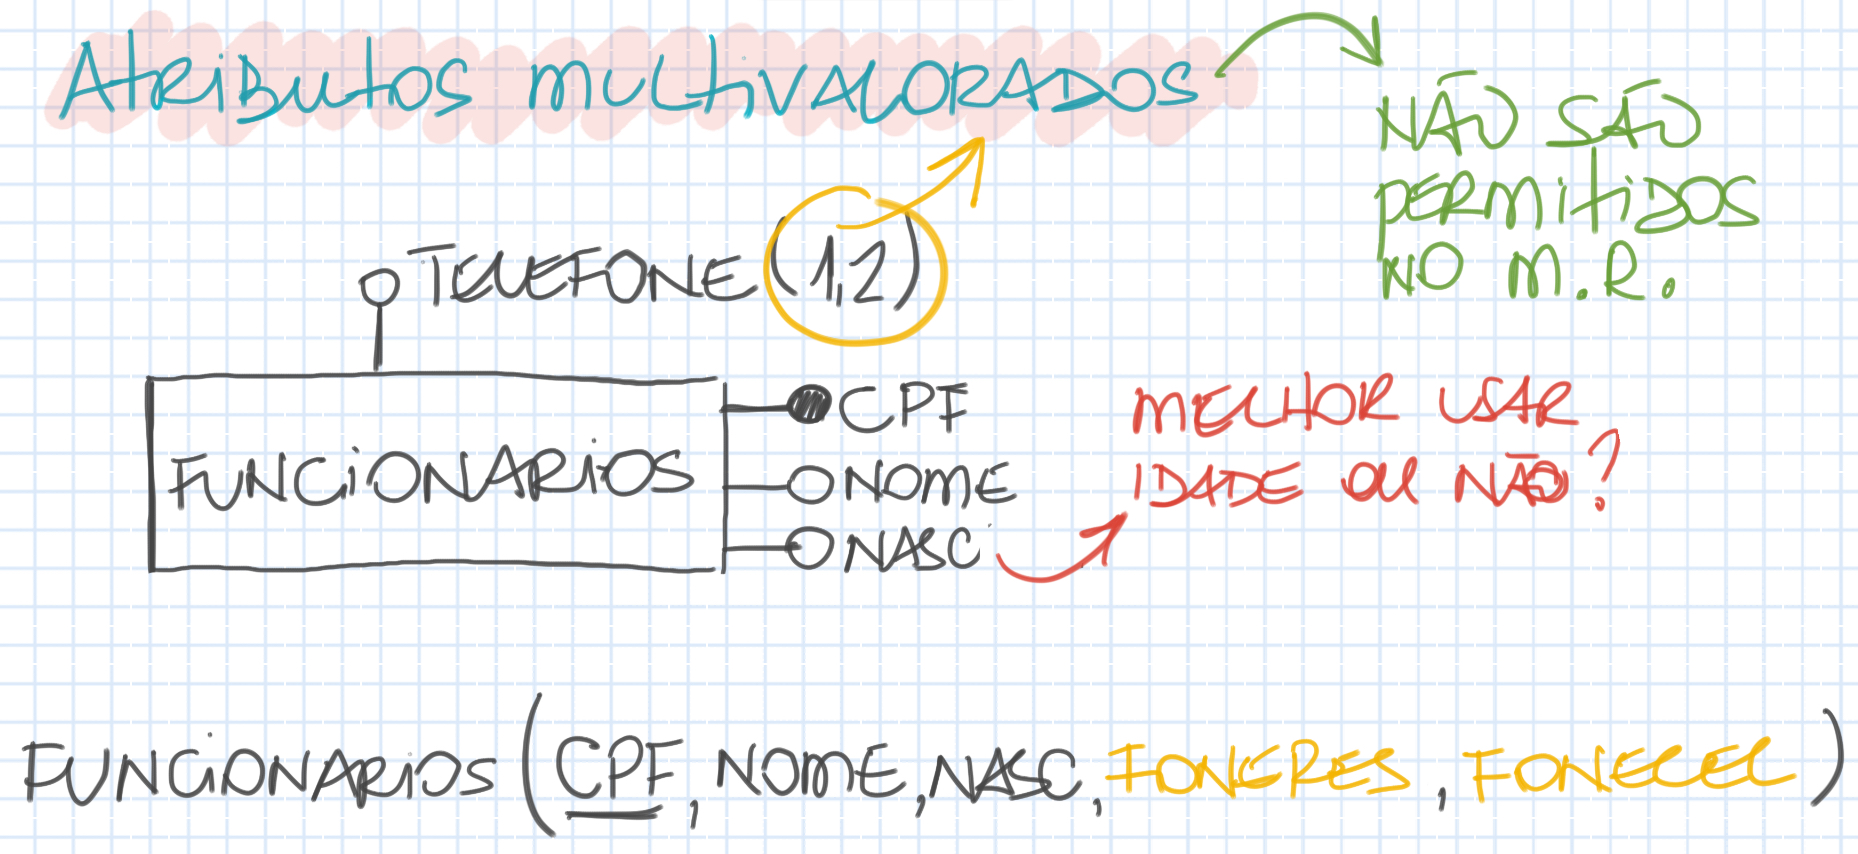 Atributos multivalorados
NÃO SÃO
PERMITIDOS
NO M.R.
TELEFONE (1,2)
FUNCIONARIOS
CPF
NOME
NASC
MELHOR USAR
IDADE OU NÃO?
FUNCIONARIOS (CPF, NOME, NASC, FONERES, FONECEL)